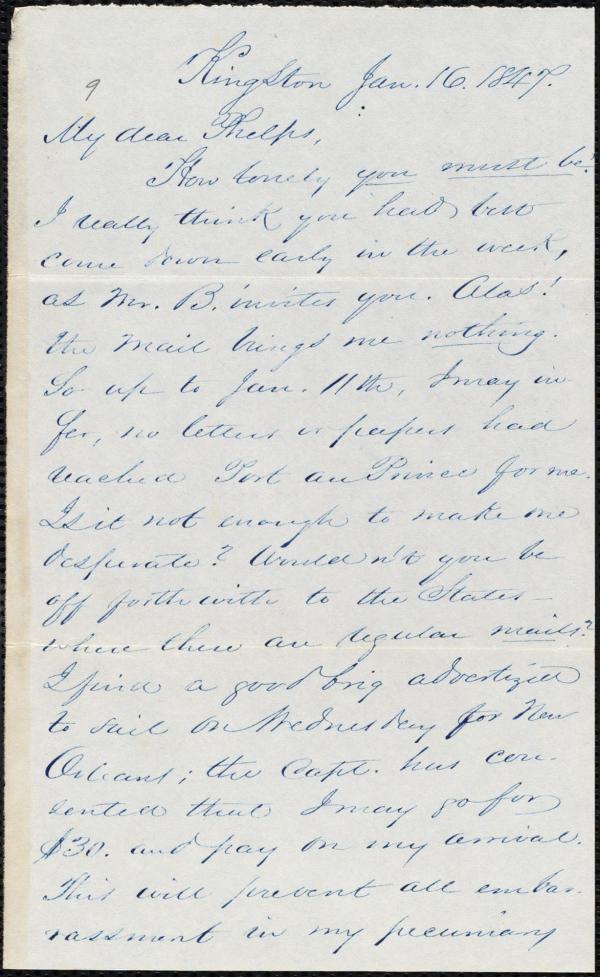 Kingston Jan. 16. 1847.
9
My dear Phelps,
How lonely you must be!
I really think you had best
come down early in the week,
as Mr. B. invites you. Alas!
the Mail brings me nothing.
So up to Jan. 11th, I may in-
fer, no letters or papers had
reached Port au Prince for me.
Is it not enough to make one
desperate? Wouldn't you be
off forthwith to the States -
where there are regular mails?
I find a good brig advertized
to sail on Wednesday for New
Orleans; the Capt. has con-
sented that I may go for
$30. and pay on my arrival.
This will prevent all embar-
rassment in my pecuniary